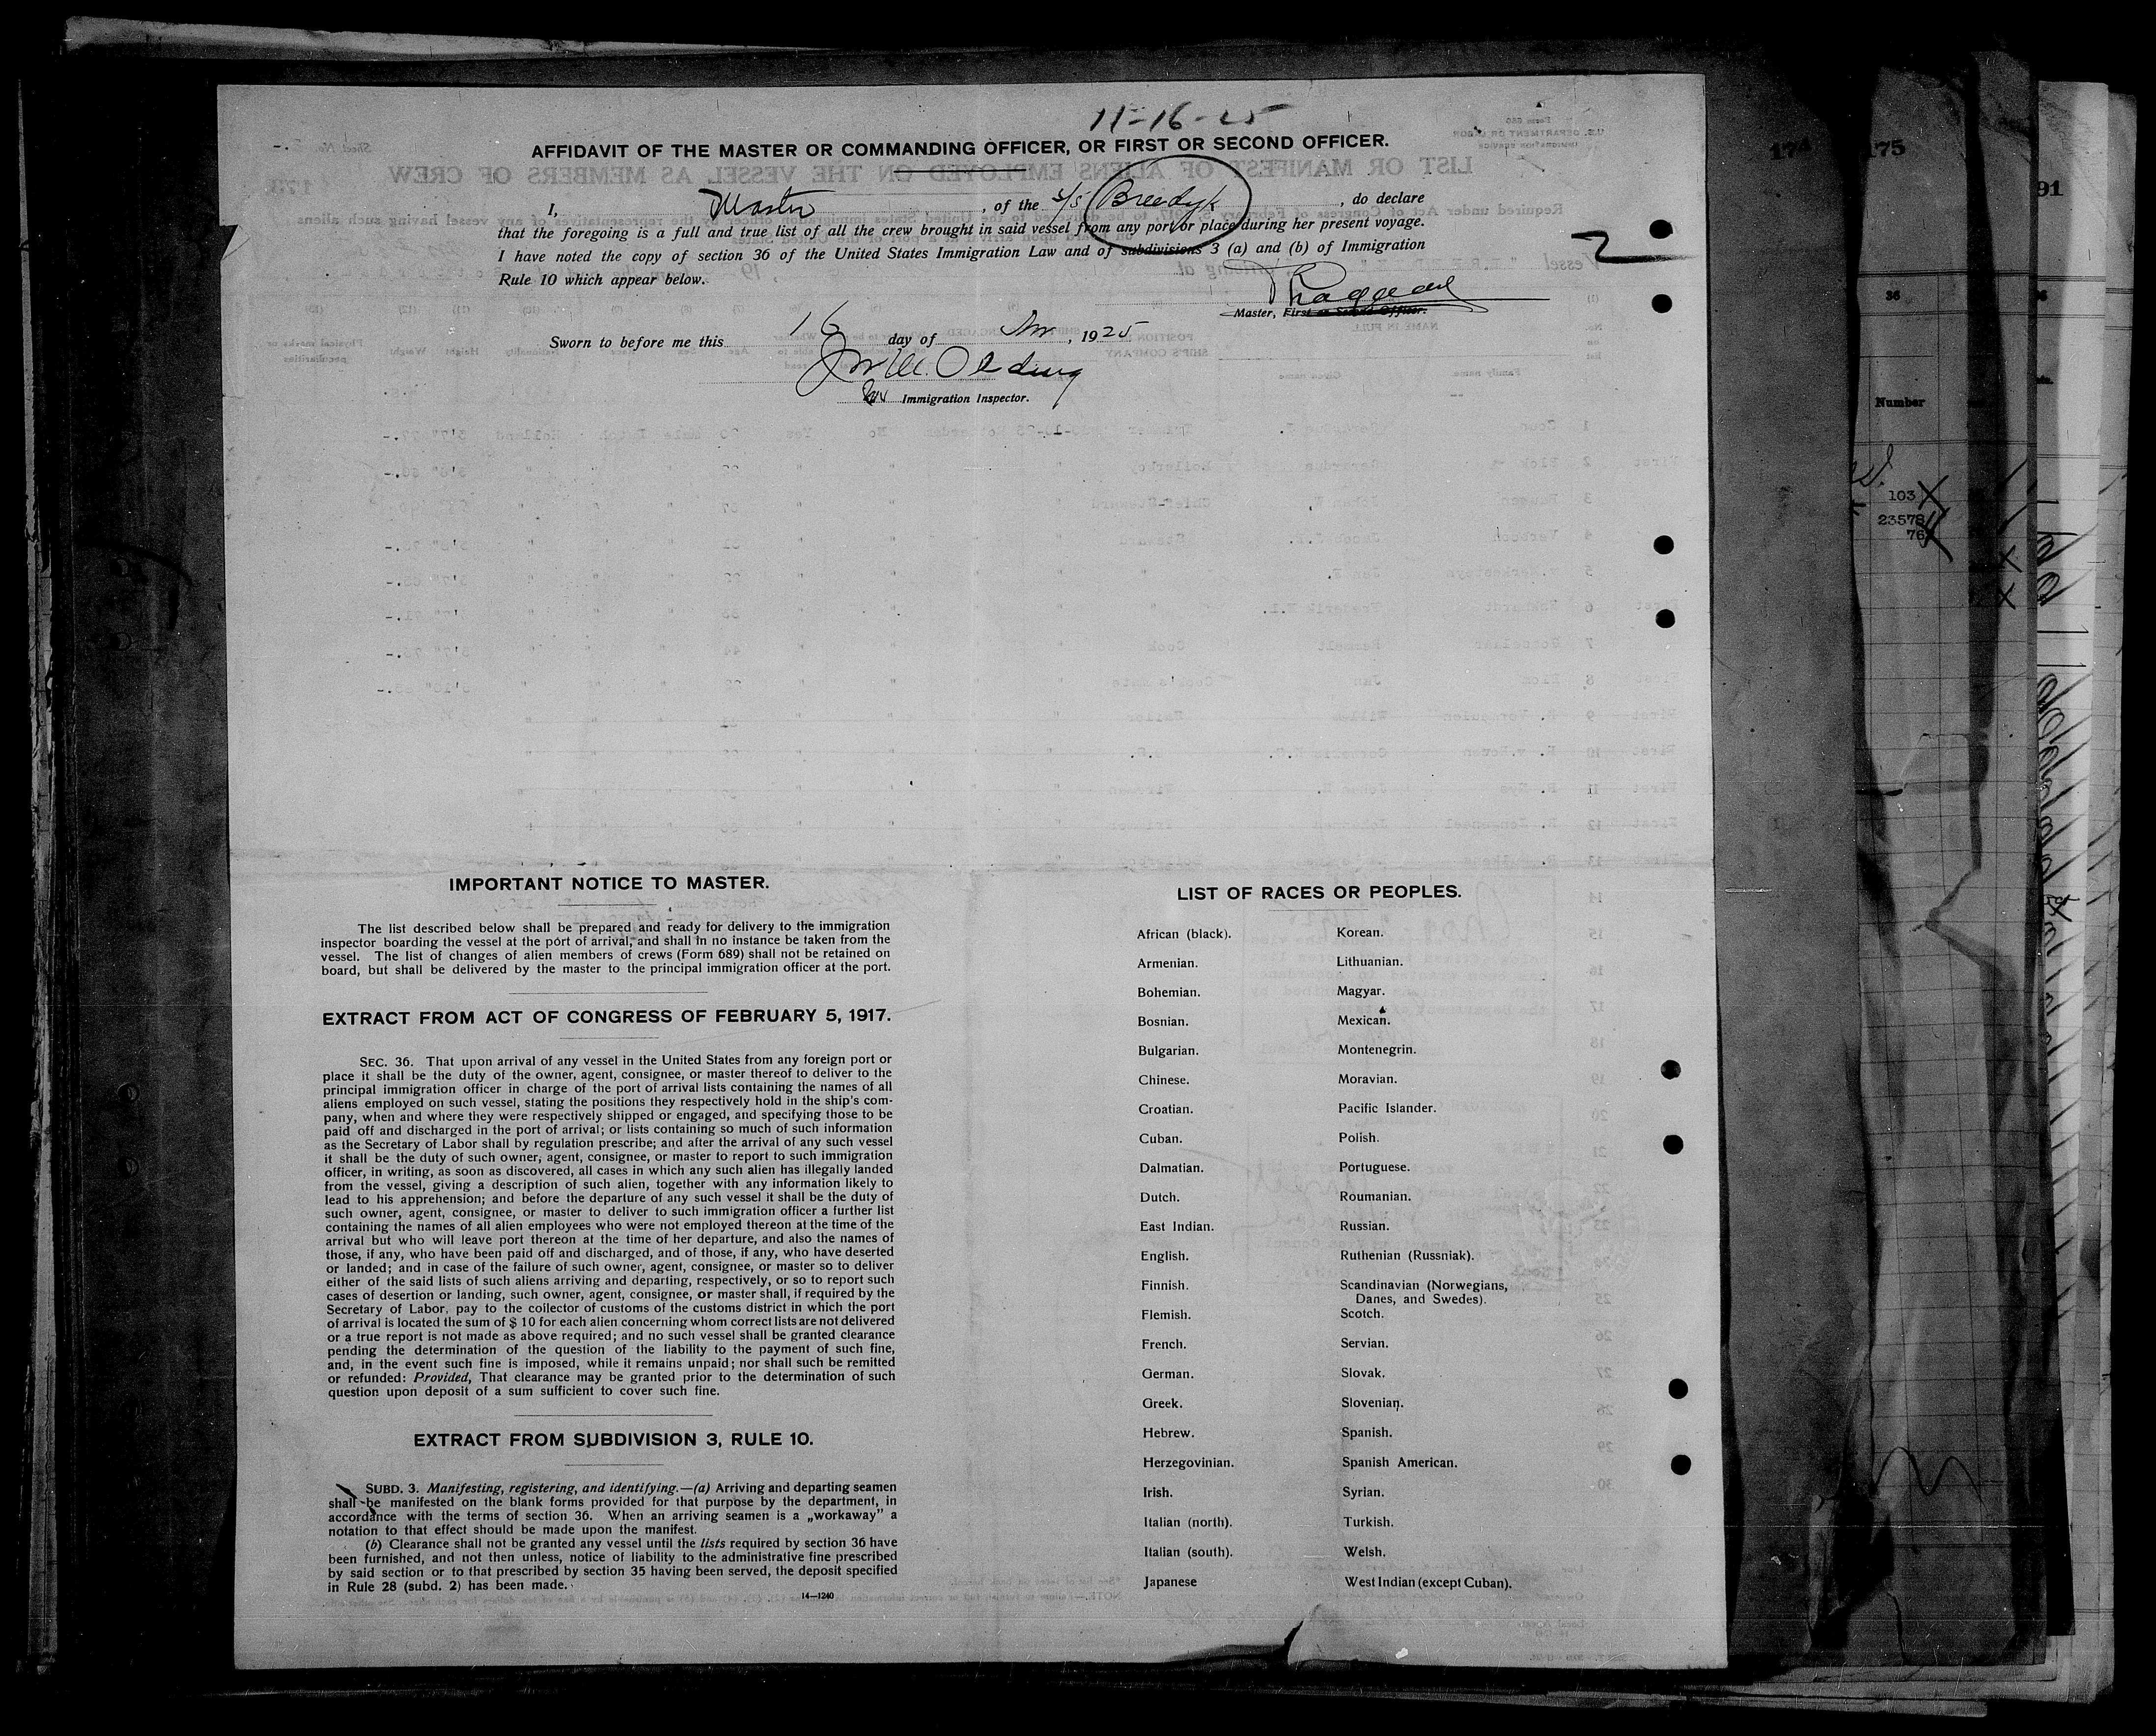 11-16-25
AFFIDAVIT OF THE MASTER OR COMMANDING OFFICER, OR FIRST OR SECOND OFFICER.
I, Master, of the S/S Breedyk, do declare
that the foregoing is a full and true list of all the crew brought in said vessel from any port or place during her present voyage.
I have noted the copy of section 36 of the United States Immigration Law and of subdivisions 3 (a) and (b) of Immigration
Rule 10 which appear below.
2
Master, First or Second Officer.
Sworn to before me this 16 day of Nov, 1925
Immigration Inspector.
IMPORTANT NOTICE TO MASTER.
The list described below shall be prepared and ready for delivery to the immigration
inspector boarding the vessel at the port of arrival, and shall in no instance be taken from the
vessel. The list of changes of alien members of crews (Form 689) shall not be retained on
board, but shall be delivered by the master to the principal immigration officer at the port.
EXTRACT FROM ACT OF CONGRESS OF FEBRUARY 5, 1917.
SEC. 36. That upon arrival of any vessel in the United States from any foreign port or
place it shall be the duty of the owner, agent, consignee, or master thereof to deliver to the
principal immigration officer in charge of the port of arrival lists containing the names of all
aliens employed on such vessel, stating the positions they respectively hold in the ship's com-
pany, when and where they were respectively shipped or engaged, and specifying those to be
paid off and discharged in the port of arrival; or lists containing so much of such information
as the Secretary of Labor shall by regulation prescribe; and after the arrival of any such vessel
it shall be the duty of such owner, agent, consignee, or master to report to such immigration
officer, in writing, as soon as discovered, all cases in which any such alien has illegally landed
from the vessel, giving a description of such alien, together with any information likely to
lead to his apprehension; and before the departure of any such vessel it shall be the duty of
such owner, agent, consignee, or master to deliver to such immigration officer a further list
containing the names of all alien employees who were not employed thereon at the time of the
arrival but who will leave port thereon at the time of her departure, and also the names of
those, if any, who have been paid off and discharged, and of those, if any, who have deserted
or landed; and in case of the failure of such owner, agent, consignee, or master so to deliver
either of the said lists of such aliens arriving and departing, respectively, or so to report such
cases of desertion or landing, such owner, agent, consignee, or master shall, if required by the
Secretary of Labor, pay to the collector of customs of the customs district in which the port
of arrival is located the sum of $ 10 for each alien concerning whom correct lists are not delivered
or a true report is not made as above required; and no such vessel shall be granted clearance
pending the determination of the question of the liability to the payment of such fine,
and, in the event such fine is imposed, while it remains unpaid; nor shall such be remitted
or refunded: Provided, That clearance may be granted prior to the determination of such
question upon deposit of a sum sufficient to cover such fine.
EXTRACT FROM SUBDIVISION 3, RULE 10.
SUBD. 3. Manifesting, registering, and identifying.—(a) Arriving and departing seamen
shall be manifested on the blank forms provided for that purpose by the department, in
accordance with the terms of section 36. When an arriving seamen is a „workaway" a
notation to that effect should be made upon the manifest.
(b) Clearance shall not be granted any vessel until the lists required by section 36 have
been furnished, and not then unless, notice of liability to the administrative fine prescribed
by said section or to that prescribed by section 35 having been served, the deposit specified
in Rule 28 (subd. 2) has been made.
14—1240
LIST OF RACES OR PEOPLES.
African (black).
Armenian.
Bohemian.
Bosnian.
Bulgarian.
Chinese.
Croatian.
Cuban.
Dalmatian.
Dutch.
East Indian.
English.
Finnish.
Flemish.
French.
German.
Greek.
Hebrew.
Herzegovinian.
Irish.
Italian (north).
Italian (south).
Japanese
Korean.
Lithuanian.
Magyar.
Mexican.
Montenegrin.
Moravian.
Pacific Islander.
Polish.
Portuguese.
Roumanian.
Russian.
Ruthenian (Russniak).
Scandinavian (Norwegians,
Danes, and Swedes).
Scotch.
Servian.
Slovak.
Slovenian.
Spanish.
Spanish American.
Syrian.
Turkish.
Welsh.
West Indian (except Cuban).
174
175
36
Number
103
23578
76
91